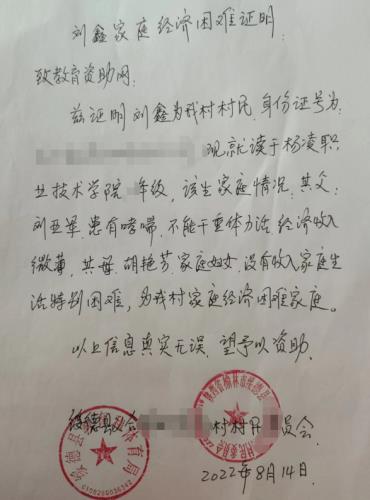 刘鑫家庭经济困难证明
致教育资助网:
兹证明刘鑫为我村村民,身份证号为:
现就读于杨凌职
业技术学院 年级,该生家庭情况:其父:
刘亚军,患有哮喘,不能干重体力活,经济收入
微薄,其母:胡艳芳家庭妇女,没有收入家庭生
活特别困难,为我村家庭经济困难家庭。
以上信息真实无误,望予以资助.
绥德县 村村民 员会.
2022年8月14日.